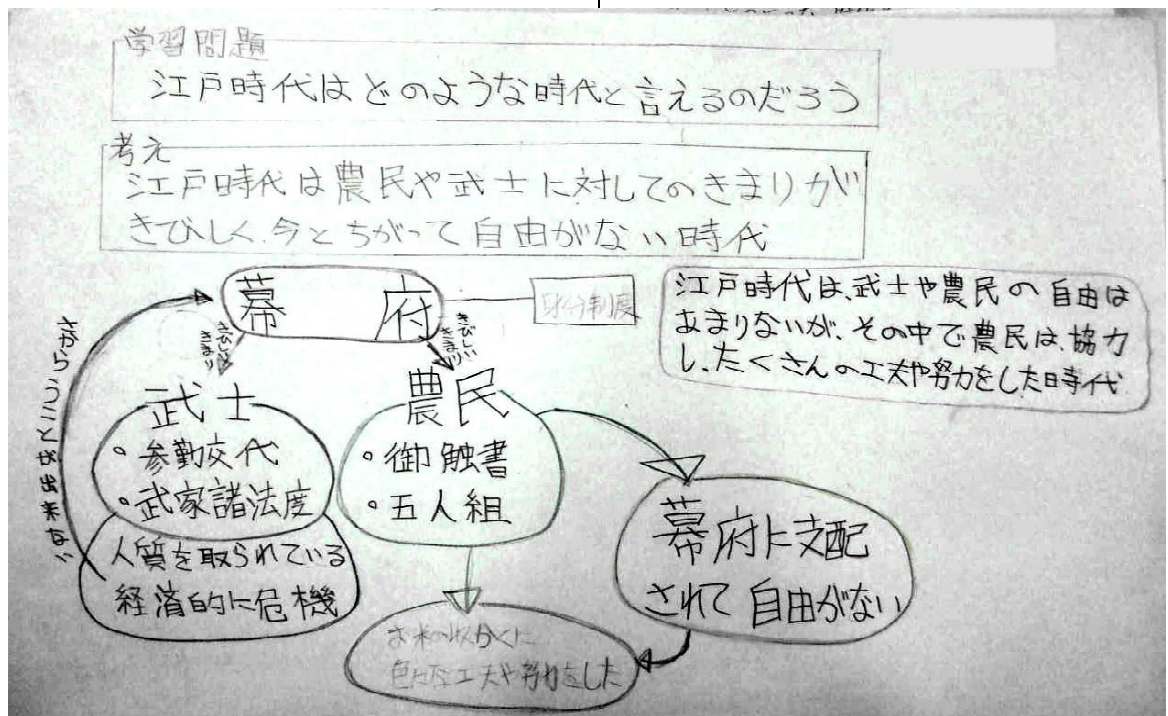 学習問題
江戸時代はどのような時代と言えるのだろう
考え
江戸時代は農民や武士に対してのきまりが
きびしく、今とちがって自由がない時代
幕府
身分制度
江戸時代は、武士や農民の自由は
あまりないが、その中で農民は、協力
し、たくさんの工夫や努力をした時代
さからうことが出来ない
きびしい
きまり
きびしい
きまり
武士
・参勤交代
・武家諸法度
人質を取られている
経済的に危機
農民
・御触書
・五人組
幕府に支配
されて自由がない
お米の収かくに
色々な工夫や努力をした